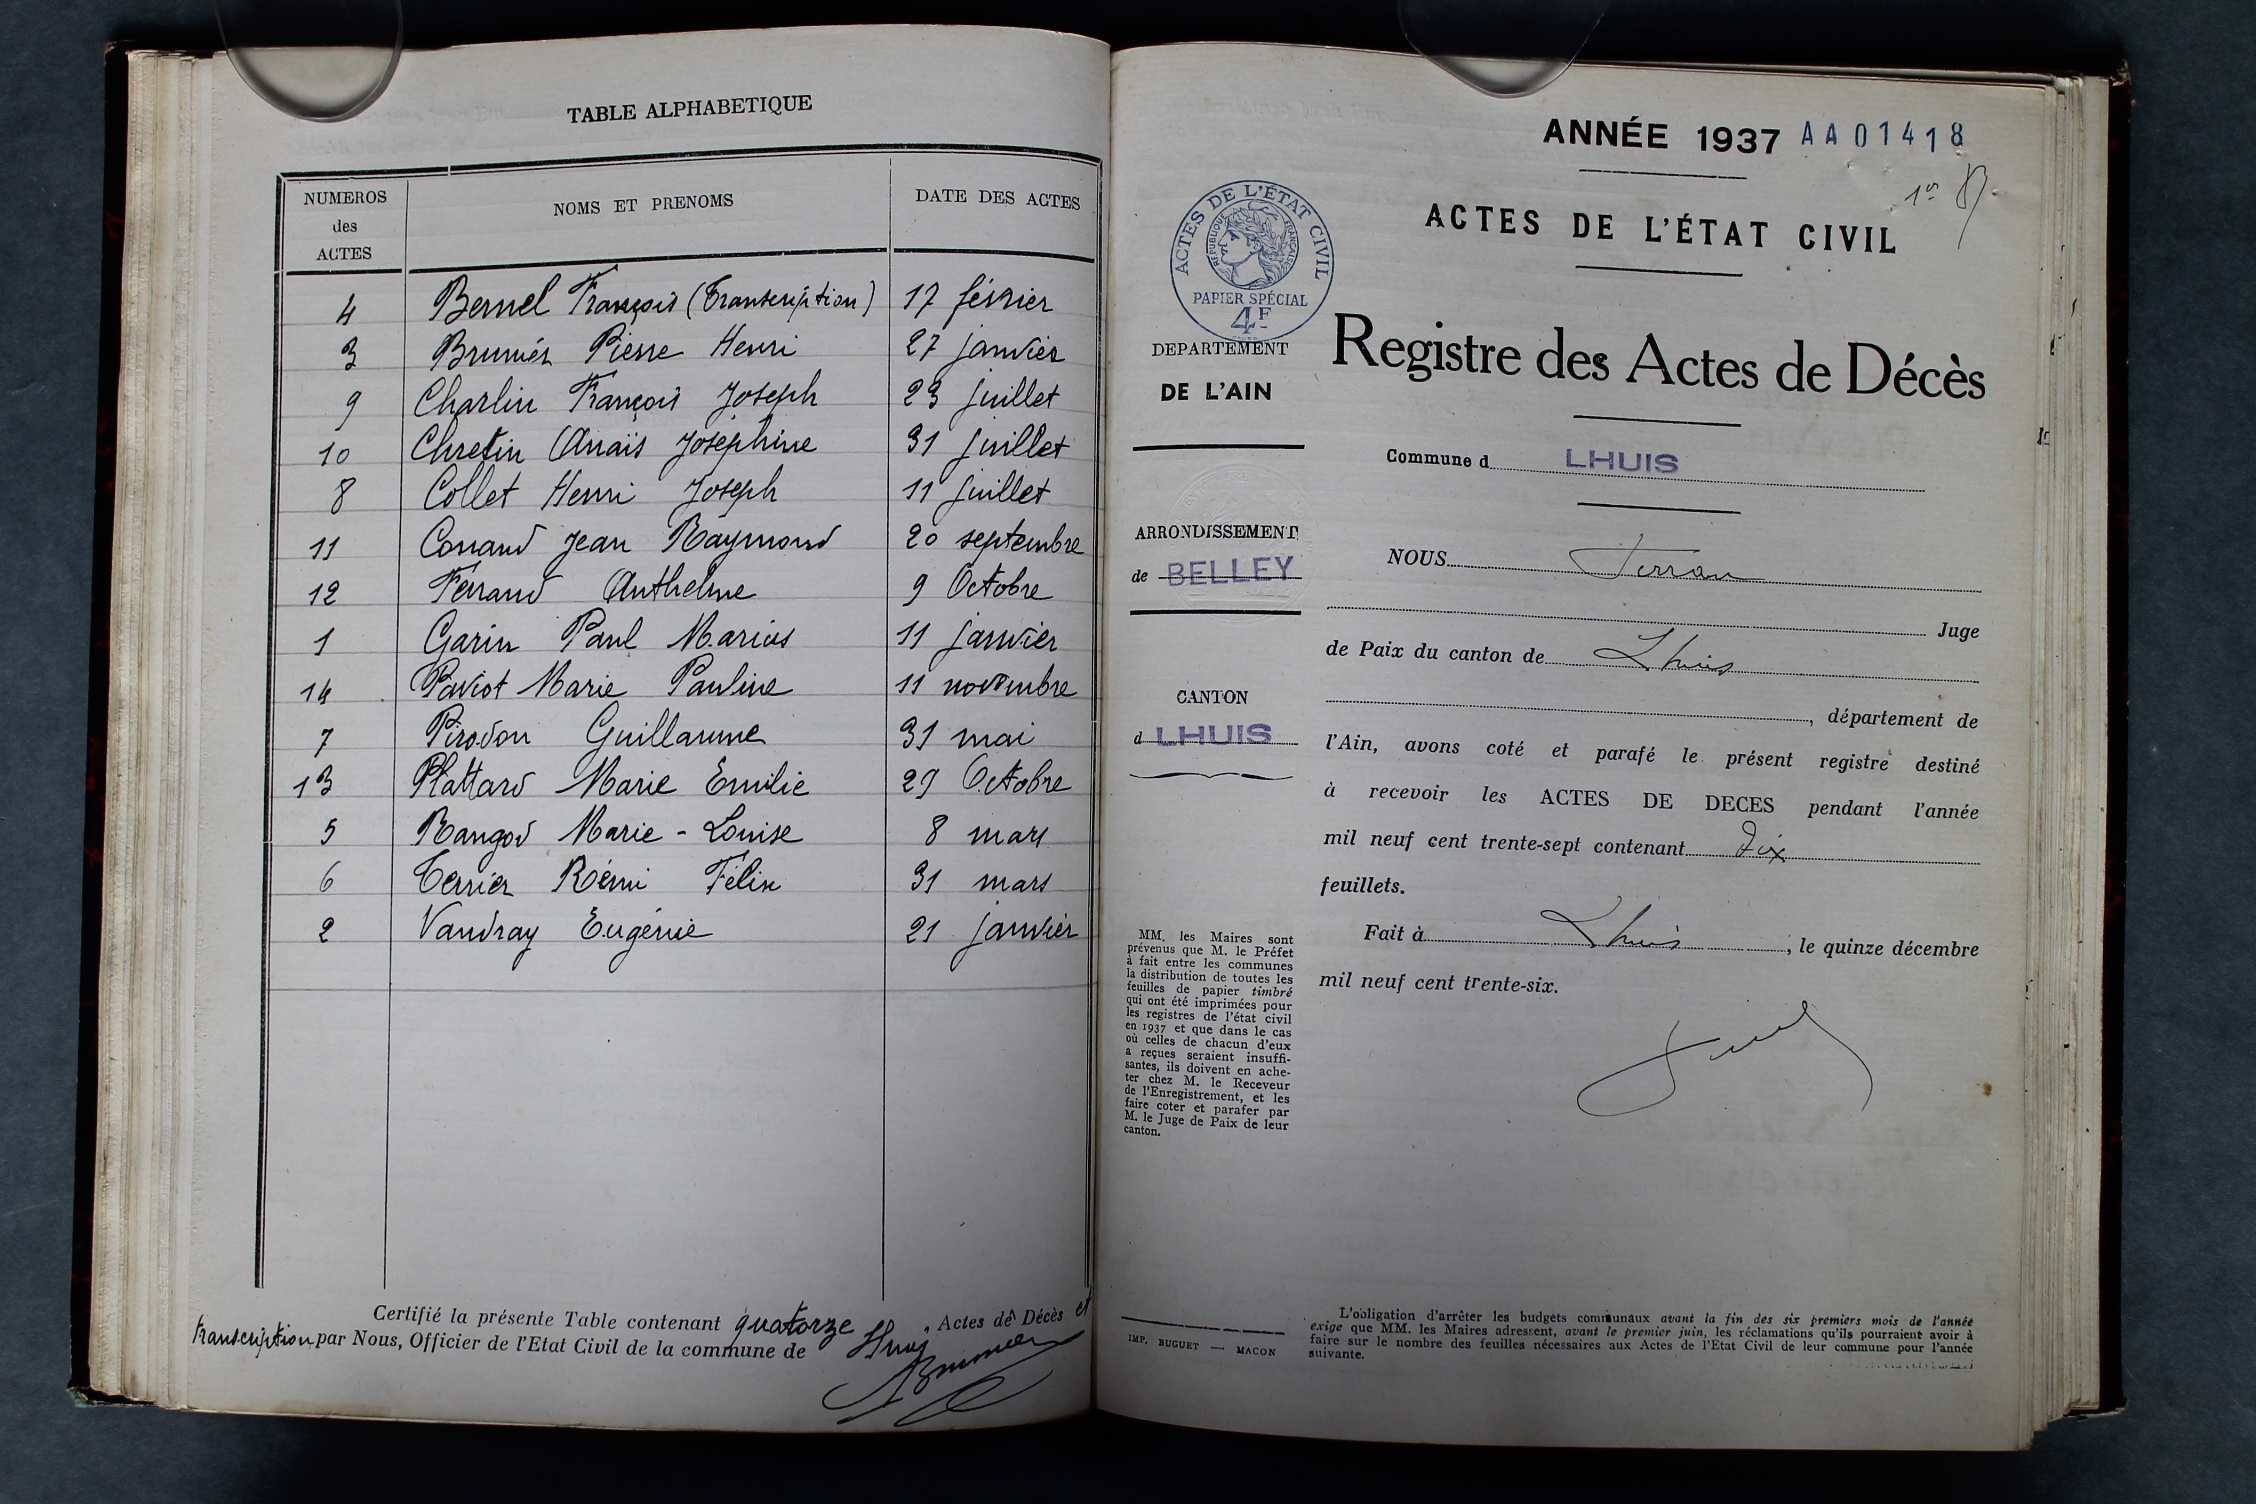 TABLE ALPHABETIQUE
NUMEROS des ACTES
NOMS ET PRENOMS
DATE DES ACTES
4 Bernel François (Transcription) 17 février
3 Brunier Pierre Henri 27 janvier
9 Charlin François Joseph 23 juillet
10 Chretin Anaïs Joséphine 31 juillet
8 Collet Henri Joseph 11 juillet
11 Conand Jean Raymond 20 septembre
12 Ferrand Anthelme 9 Octobre
1 Garin Paul Marius 11 janvier
14 Paviot Marie Pauline 11 novembre
7 Pirodon Guillaume 31 mai
13 Plattard Marie Emilie 29 Octobre
5 Rangod Marie-Louise 8 mars
6 Terrier Rémi Félix 31 mars
2 Vaudray Eugénie 21 janvier
Certifié la présente Table contenant quatorze Actes de Décès et
transcription par Nous, Officier de l'Etat Civil de la commune de Lhuis
ANNÉE 1937 AA01418
1er
ACTES DE L'ÉTAT CIVIL
ACTES DE L'ÉTAT CIVIL
REPUBLIQUE FRANÇAISE
PAPIER SPÉCIAL
4F
DEPARTEMENT
DE L'AIN
Registre des Actes de Décès
Commune d LHUIS
ARRONDISSEMENT
de BELLEY
CANTON
d LHUIS
NOUS Ferran
Juge
de Paix du canton de Lhuis
, département de
l'Ain, avons coté et parafé le présent registre destiné
à recevoir les ACTES DE DECES pendant l'année
mil neuf cent trente-sept contenant dix
feuillets.
Fait à Lhuis, le quinze décembre
mil neuf cent trente-six.
MM. les Maires sont
prévenus que M. le Préfet
à fait entre les communes
la distribution de toutes les
feuilles de papier timbré
qui ont été imprimées pour
les registres de l'état civil
en 1937 et que dans le cas
où celles de chacun d'eux
a reçues seraient insuffi-
santes, ils doivent en ache-
ter chez M. le Receveur
de l'Enregistrement, et les
faire coter et parafer par
M. le Juge de Paix de leur
canton.
IMP. BUGUET — MACON
L'obligation d'arrêter les budgets communaux avant la fin des six premiers mois de l'année
exige que MM. les Maires adressent, avant le premier juin, les réclamations qu'ils pourraient avoir à
faire sur le nombre des feuilles nécessaires aux Actes de l'Etat Civil de leur commune pour l'année
suivante.